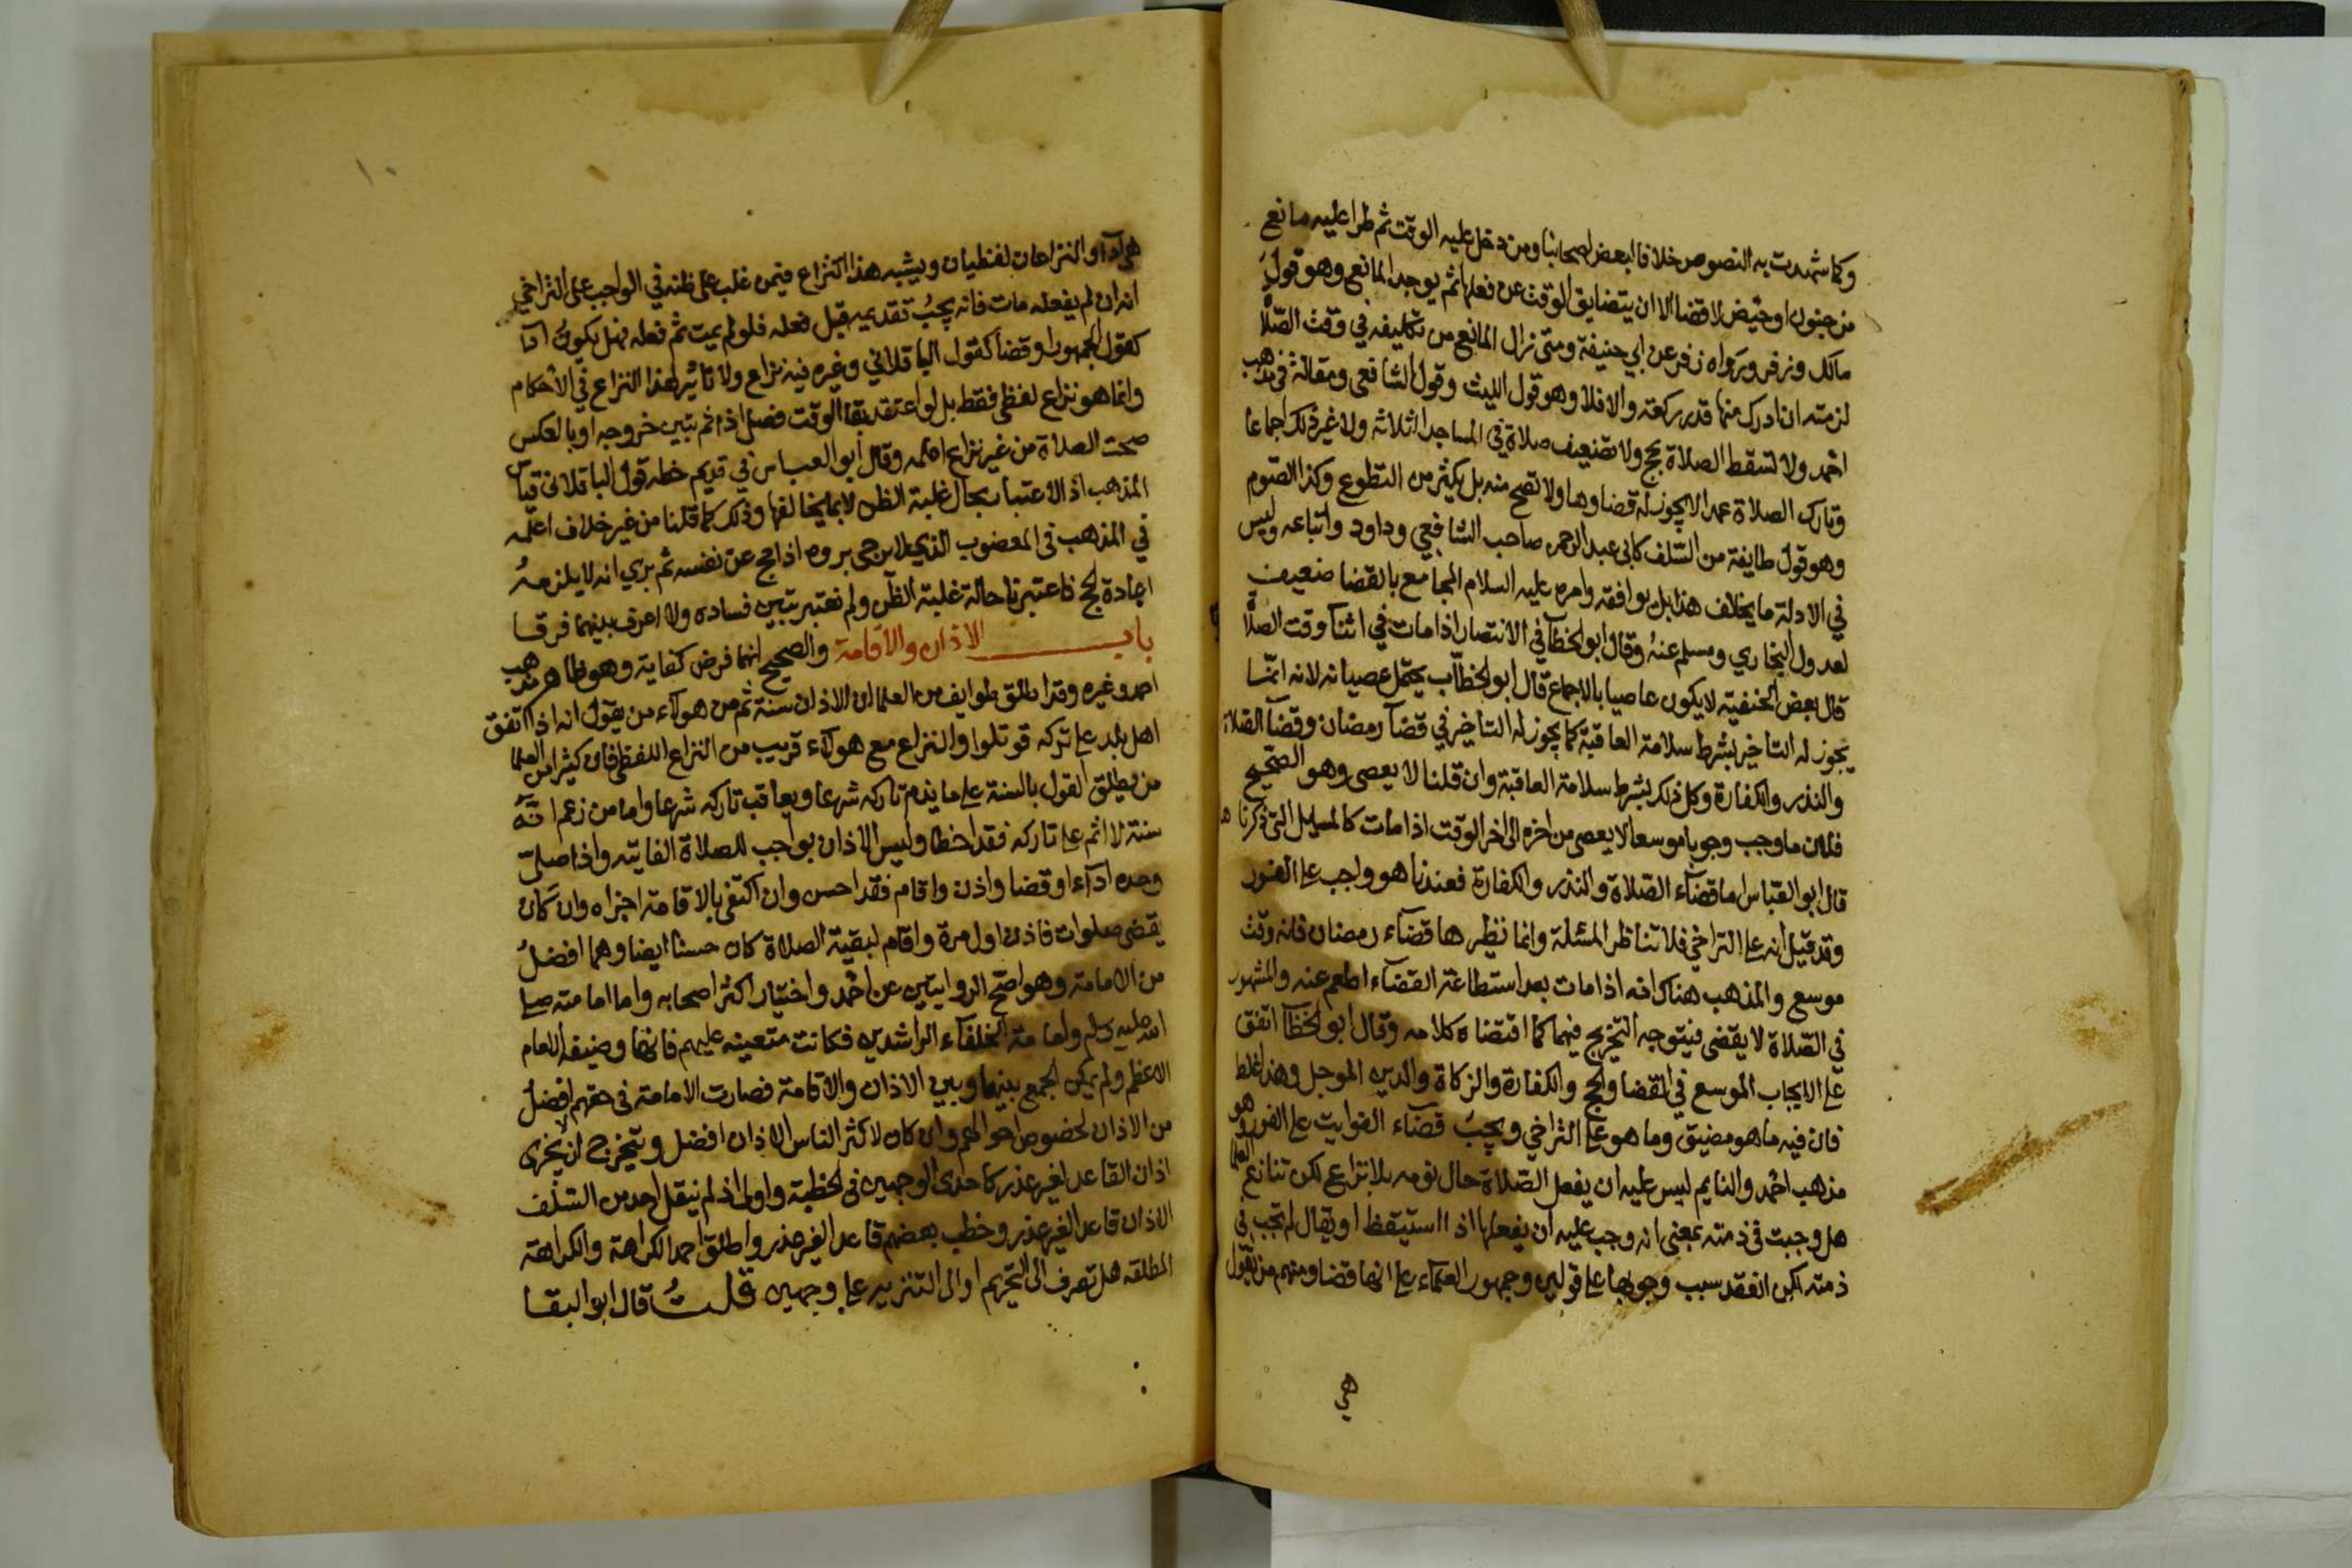 وكما شهدت به النصوص خلافا لبعض اصحابنا ومن دخل عليه الوقت ثم طرا عليه مانع
من جنون او حيض لا قضا الا ان يتضايق الوقت عن فعلها ثم يوجد المانع وهو قول
مالك وزفر ورواه زفر عن ابي حنيفة ومتى زال المانع من تكليفه في وقت الصلاة
لزمته ان ادرك منها قدر ركعة والا فلا وهو قول الليث وقول الشافعي ومقالة في مذهب
احمد ولا تسقط الصلاة بحج ولا تضعيف صلاة في المساجد الثلاثة ولا غير ذلك اجماعا
وتارك الصلاة عمدا لا يجوز له قضاوها ولا تصح منه بل يكثر من التطوع وكذا الصوم
وهو قول طايفة من السلف كابي عبد الرحمن صاحب الشافعي وداود واتباعه وليس
في الادلة ما يخالف هذا بل يوافقه وامره عليه السلام المجامع بالقضا ضعيف
لعدول البخاري ومسلم عنه وقال ابو الخطاب في الانتصار اذا مات في اثنا وقت الصلاة
قال بعض الحنفية لا يكون عاصيا بالاجماع قال ابو الخطاب يحتمل عصيانه لانه انما
يجوز له التاخير بشرط سلامة العاقبة كما يجوز له التاخير في قضا رمضان وقضا الصلاة
والنذر والكفارة وكل ذلك بشرط سلامة العاقبة وان قلنا لا يعصي وهو الصحيح
فلان ما وجب وجوبا موسعا لا يعصي من اخره الى اخر الوقت اذا مات كالمسايل التي ذكرناها
قال ابو العباس اما قضاء الصلاة والنذر والكفارة فعندنا هو واجب على الفور
وقد قيل انه على التراخي فلا تناظر المسئلة وانما نظيرها قضاء رمضان فانه وقت
موسع والمذهب هناك انه اذا مات بعد استطاعة القضاء اطعم عنه والمشهور
في الصلاة لا يقضى فيتوجه التخريج فيهما كما اقتضاه كلامه وقال ابو الخطاب اتفق
على الايجاب الموسع في القضا والحج والكفارة والزكاة والدين الموجل وهذا غلط
فان فيه ما هو مضيق وما هو على التراخي ويجب قضاء الفوايت على الفور وهو
مذهب احمد والنايم ليس عليه ان يفعل الصلاة حال نومه بلا نزاع لكن تنازع العلما
هل وجبت في ذمته بمعنى انه وجب عليه ان يفعلها اذا استيقظ او يقال لم تجب في
ذمته لكن انعقد سبب وجوبها على قولين وجمهور العلماء على انها قضا ومنهم من يقول
هي
١٠
هي آداء والنزاعان لفظيان ويشبه هذا النزاع فيمن غلب على ظنه في الواجب على التراخي
انه ان لم يفعله مات فانه يجب تقديمه قبل فعله فلو لم يمت ثم فعله فهل يكون اداً
كقول الجمهور او قضاً كقول الباقلاني وغيره فيه نزاع ولا تاثير لهذا النزاع في الاحكام
وانما هو نزاع لفظي فقط بل لو اعتقد بقا الوقت فصلى اذا ثم تبين خروجه او بالعكس
صحت الصلاة من غير نزاع اعلمه وقال ابو العباس في قديم خطه قول الباقلاني قياس
المذهب اذ الاعتبار بحال غلبة الظن لا بما يخالفها وذلك كما قلنا من غير خلاف اعلمه
في المذهب في المعضوب الذي لا يرجى بروه اذا حج عن نفسه ثم بري انه لا يلزمه
اعادة الحج فاعتبرنا حالة غلبة الظن ولم نعتبر تبين فساده ولا اعرف بينهما فرقا
باب الاذان والاقامة والصحيح انهما فرض كفاية وهو ظاهر مذهب
احمد وغيره وقد اطلق طوايف من العلما ان الاذان سنة ثم من هولاء من يقول انه اذا اتفق
اهل بلد على تركه قوتلوا والنزاع مع هولاء قريب من النزاع اللفظي فان كثيرا من العلما
من يطلق القول بالسنة على ما يذم تاركه شرعا ويعاقب تاركه شرعا واما من زعم انه
سنة لا اثم على تاركه فقد اخطا وليس الاذان بواجب للصلاة الفايتة واذا صلى
وحده اداء او قضا واذن واقام فقد احسن وان اكتفى بالاقامة اجزاه وان كان
يقضي صلوات فاذن اول مرة واقام لبقية الصلاة كان حسنا ايضا وهما افضل
من الامامة وهو اصح الروايتين عن احمد واختيار اكثر اصحابه واما امامته صلى
الله عليه وسلم وامامة الخلفاء الراشدين فكانت متعينة عليهم فانها وضيفة الامام
الاعظم ولم يمكن الجمع بينها وبين الاذان والاقامة فصارت الامامة في حقهم افضل
من الاذان لخصوص احوالهم وان كان لاكثر الناس الاذان افضل ويتخرج ان لا يجزي
اذان القاعد لغير عذر كاحدى الوجهين في الخطبة واولى اذ لم ينقل احد من السلف
الاذان قاعدا لغير عذر وخطب بعضهم قاعدا لغير عذر واطلق احمد الكراهة والكراهة
المطلقة هل تصرف الى التحريم او الى التنزيه على وجهين قلت قال ابو البقا